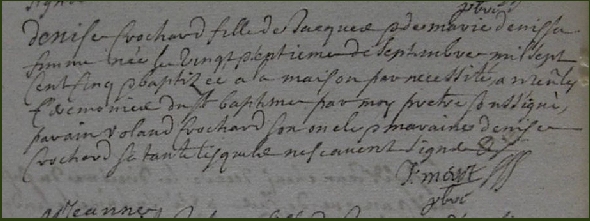 denise Crochard fille de Jacques & de marie denis sa
femme née le vingt septieme de septembre mil sept
cent cinq & baptizée a la maison par necessité a receu les
Ceremonies du st baptesme par moy pretre soussigné,
parain roland Crochard son oncle & maraine denise
Crochard sa tante lesquels ne scavent signer
pbre
Jeanne